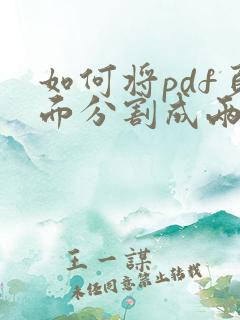 如何将pdf页
面分割成两
王一謀
未经同意禁止转载